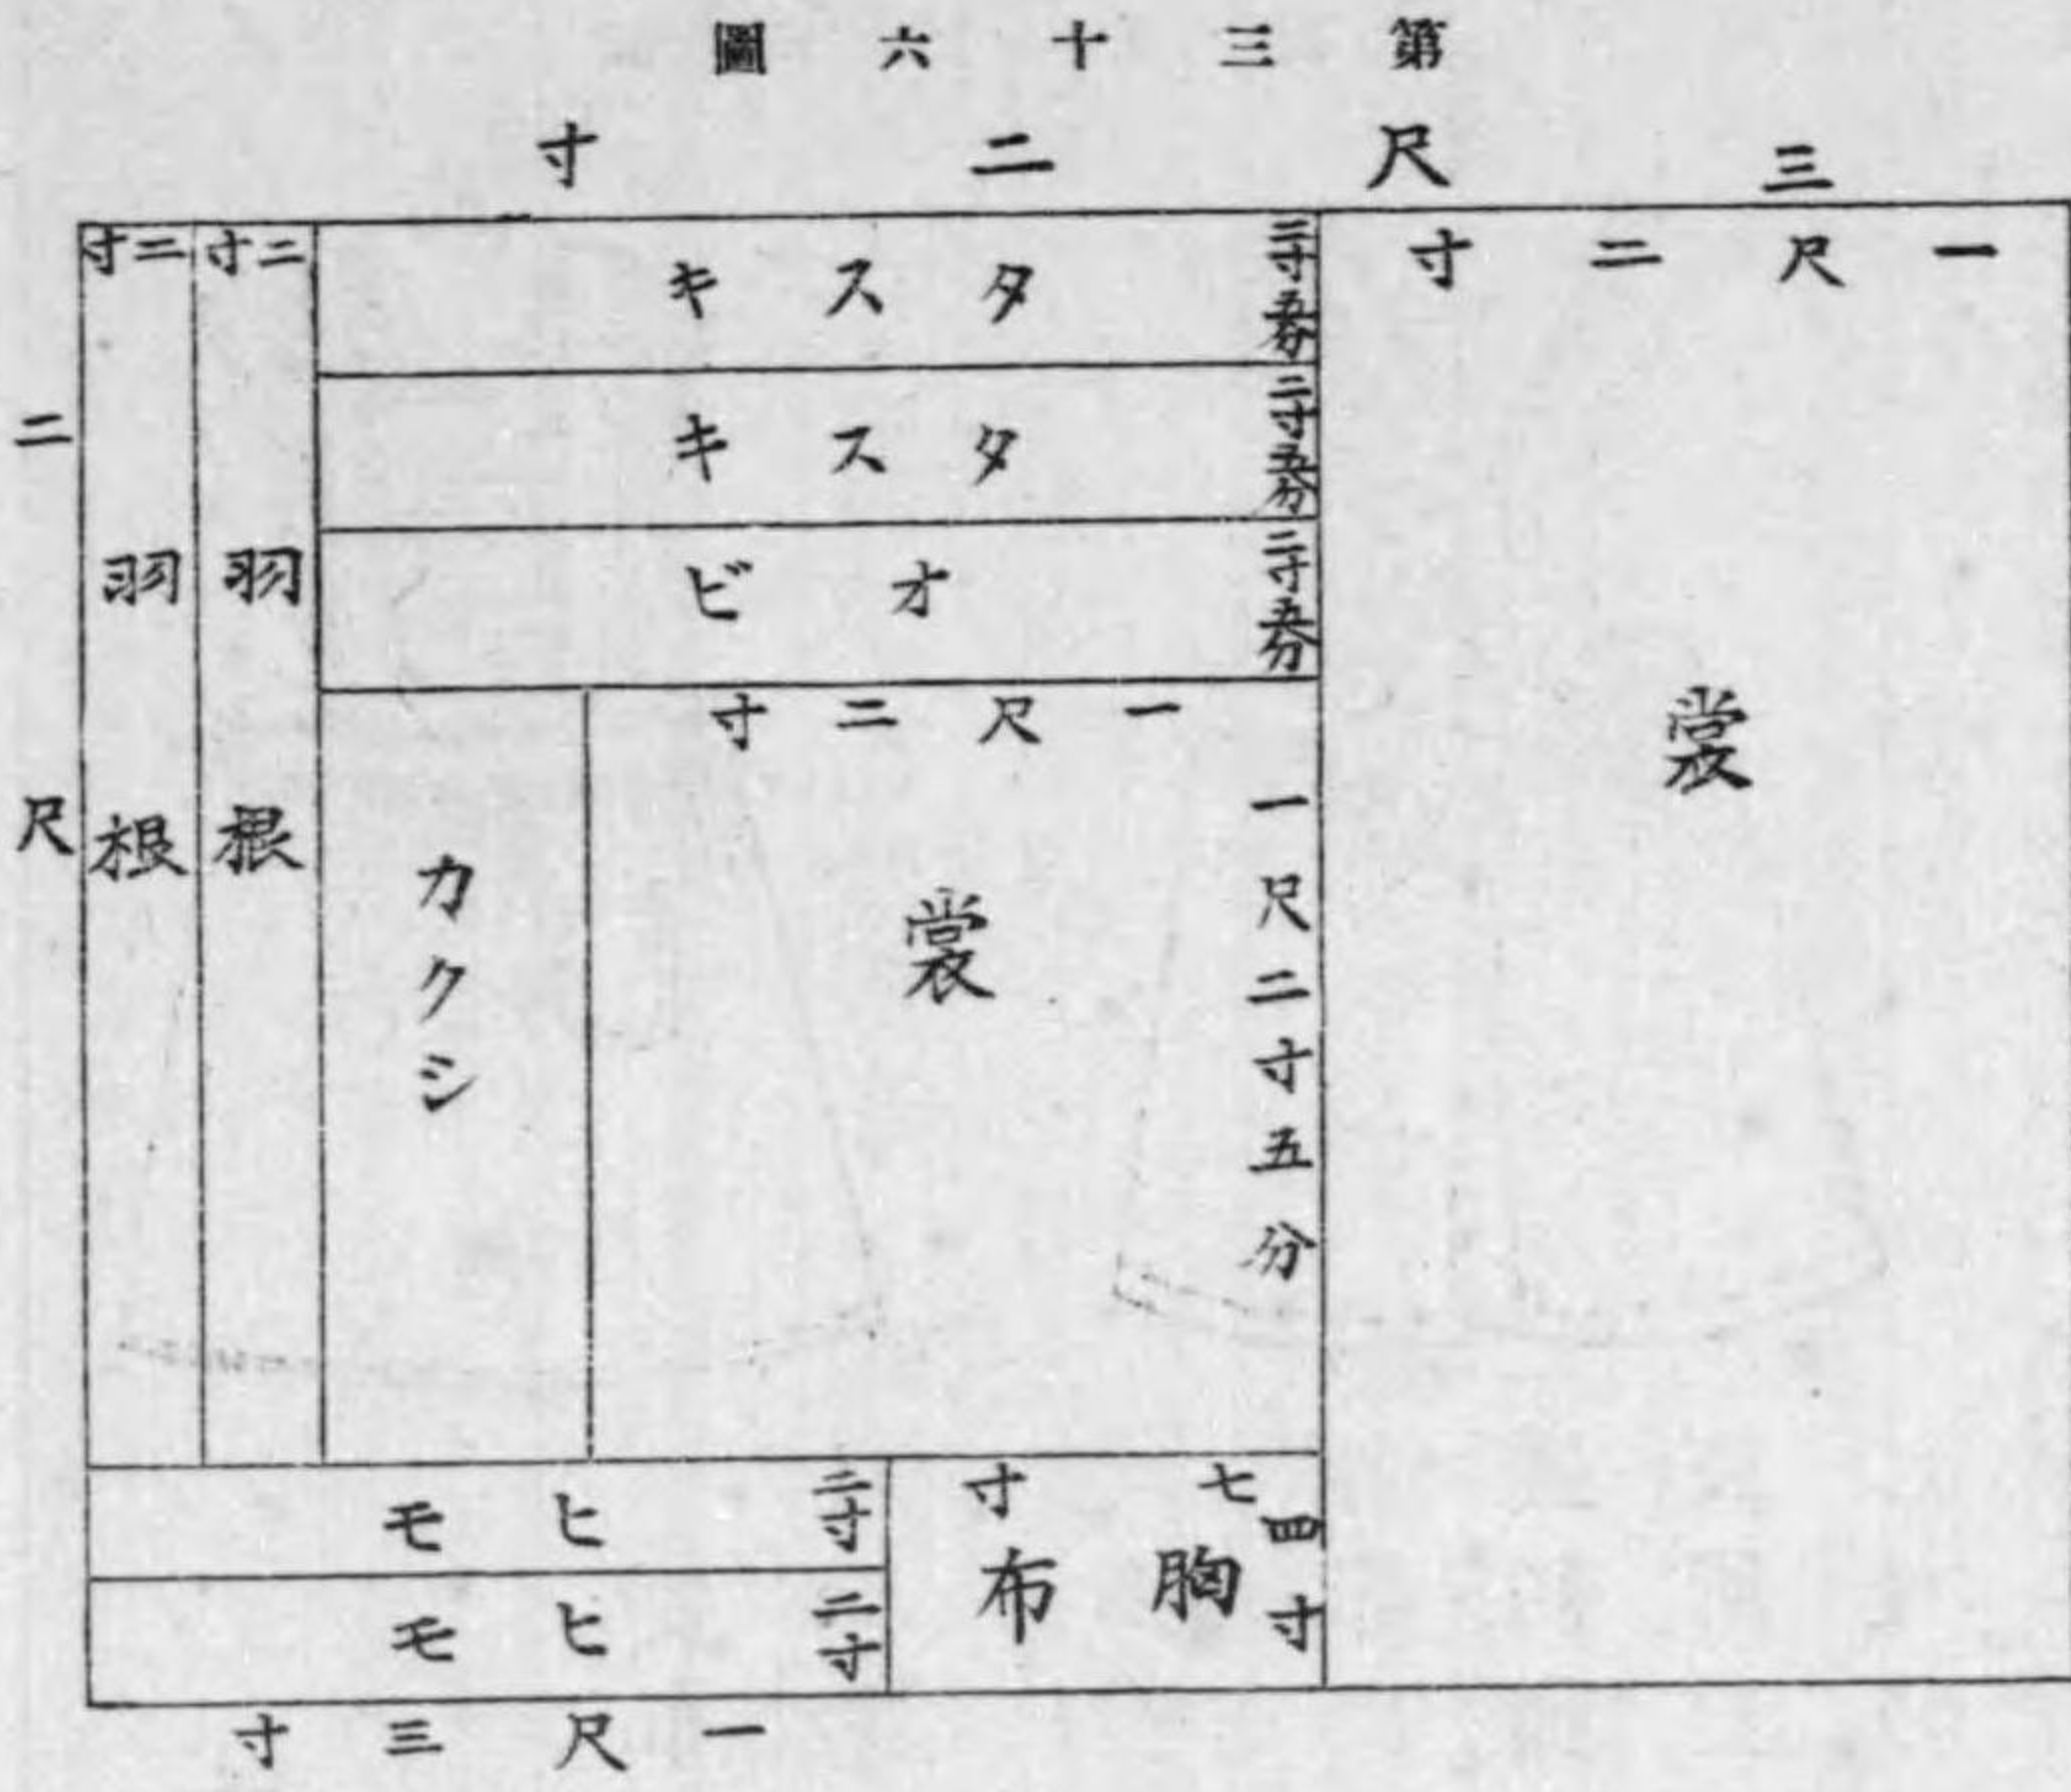 第三十六圖
三尺二寸
一尺二寸
裳
二寸五分
タスキ
二寸五分
タスキ
二寸五分
オビ
一尺二寸
一尺二寸五分
裳
カクシ
二寸
羽根
二寸
羽根
二尺
七寸
四寸
胸布
二寸
ヒモ
二寸
ヒモ
一尺三寸